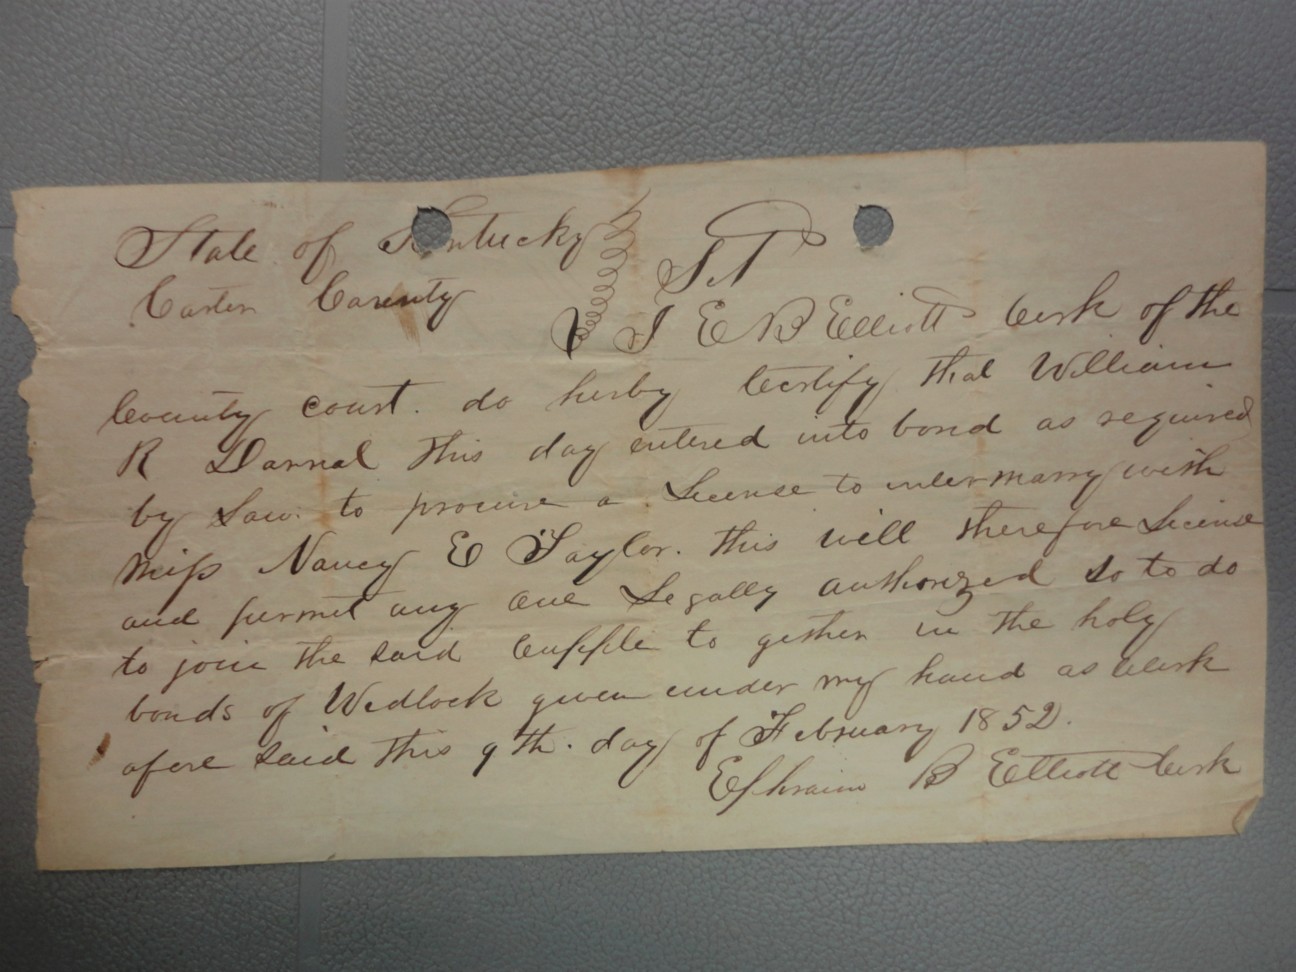 State of Kentucky
Carter County Sct
I E B Elliott Clerk of the
County court. do herby Certify that William
R Darnal this day entered into bond as required
by Law. to procure a License to intermarry with
Miss Nancy E Taylor. this will therefore License
and permit any one Legally authorized So to do
to join the said Cupple to gether in the holy
bonds of Wedlock given under my hand as Clerk
afore said this 9th. day of February 1852.
Ephraim B Elliott Clerk